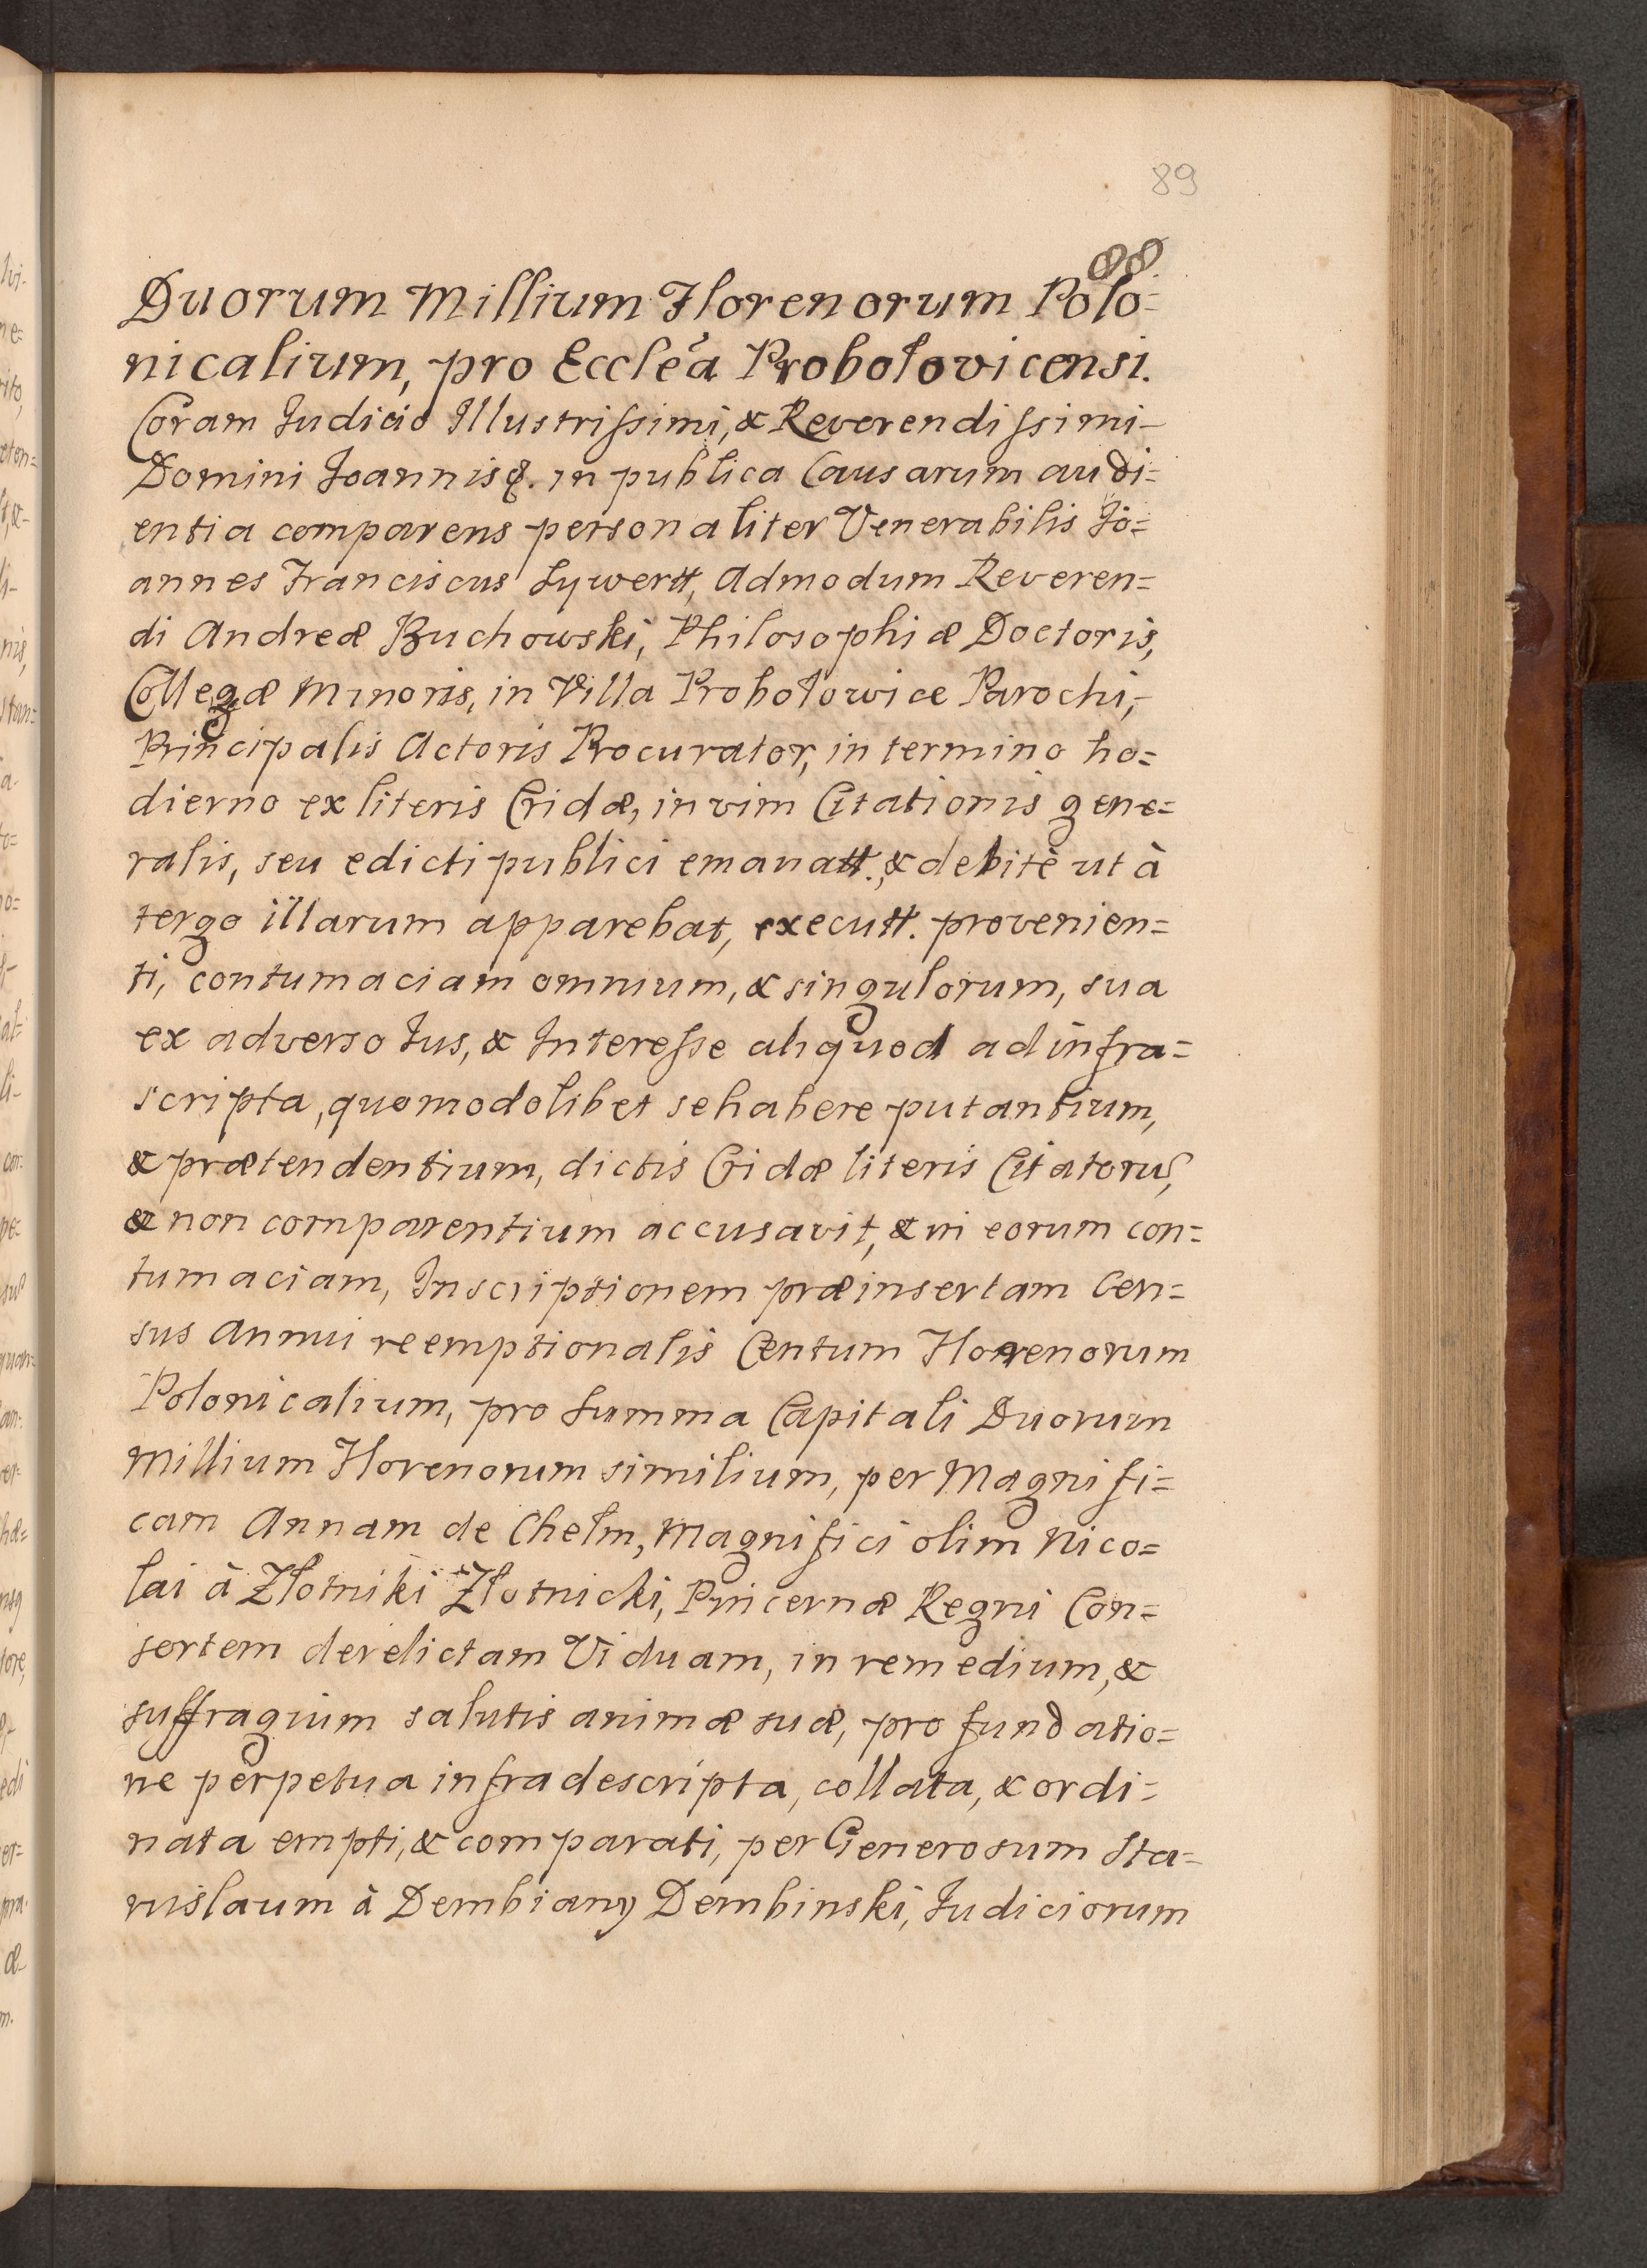 89
88.
Duorum Millium Florenorum Polo=
nicalium, pro Eccle͂a Probołovicensi.
Coram Iudicio Illustrissimi, & Reverendissimi-
Domini Ioannis &. in publica Causarum audi=
entia comparens personaliter Venerabilis Jo=
annes Franciscus Sywertt, Admodum Reveren=
di Andreæ Buchowski, Philosophiæ Doctoris,
Collegæ Minoris, in Villa Probołowice Parochi,-
Principalis Actoris Procurator, in termino ho=
dierno ex literis Cridæ, in vim Citationis gene=
ralis, seu edicti publici emanatt., & debitè ut à
tergo illarum apparebat, executt. provenien=
ti, contumaciam omnium, & singulorum, sua
ex adverso Ius, & Interesse aliquod ad infra=
scripta, quomodolibet se habere putantium,
& prætendentium, dictis Cridæ literis Citatorū,
& non comparentium accusavit, & in eorum con=
tumaciam, Inscriptionem præinsertam Cen=
sus Annui reemptionalis Centum Florenorum
Polonicalium, pro Summa Capitali Duorum
Millium Florenorum similium, per Magnifi=
cam Annam de Chełm, Magnifici olim Nico=
lai à Złotniki Złotnicki, Pincernæ Regni Con=
sortem derelictam Viduam, in remedium, &
suffragium salutis animæ suæ, pro fundatio=
ne perpetua infradescripta, collata, & ordi=
nata empti, & comparati, per Generosum Sta=
nislaum à Dembiany Dembinski, Iudiciorum